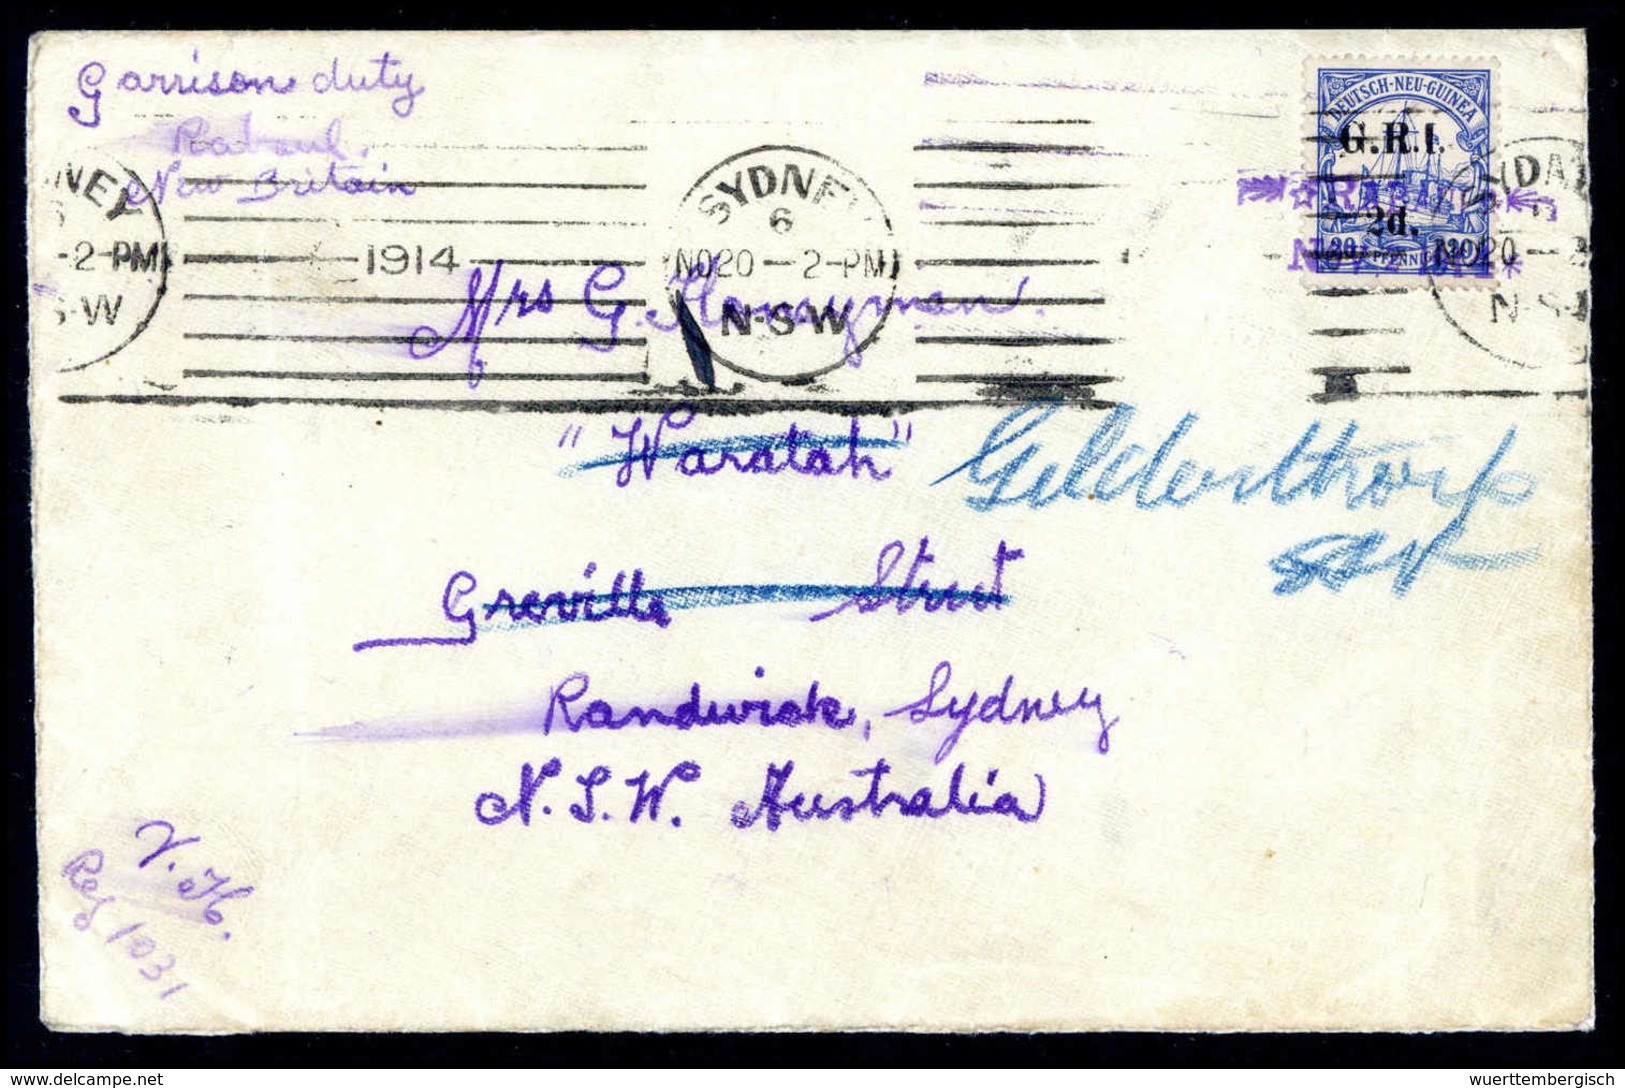 Garrison duty
Rabaul,
New Britain
DEUTSCH-NEU-GUINEA
G.R.I.
2d.
PFENNIG
RABAUL
SYDNEY
6
NO20 — 2-PM
N-S-W
1914
NEY
-2-PM
S-W
SYD
NO20
Mrs G. Honeyman.
"Waratah"
Greville Street
Randwick, Sydney
N.S.W. Australia
V.H.
Reg 1031
www.delcampe.net
wuerttembergisch